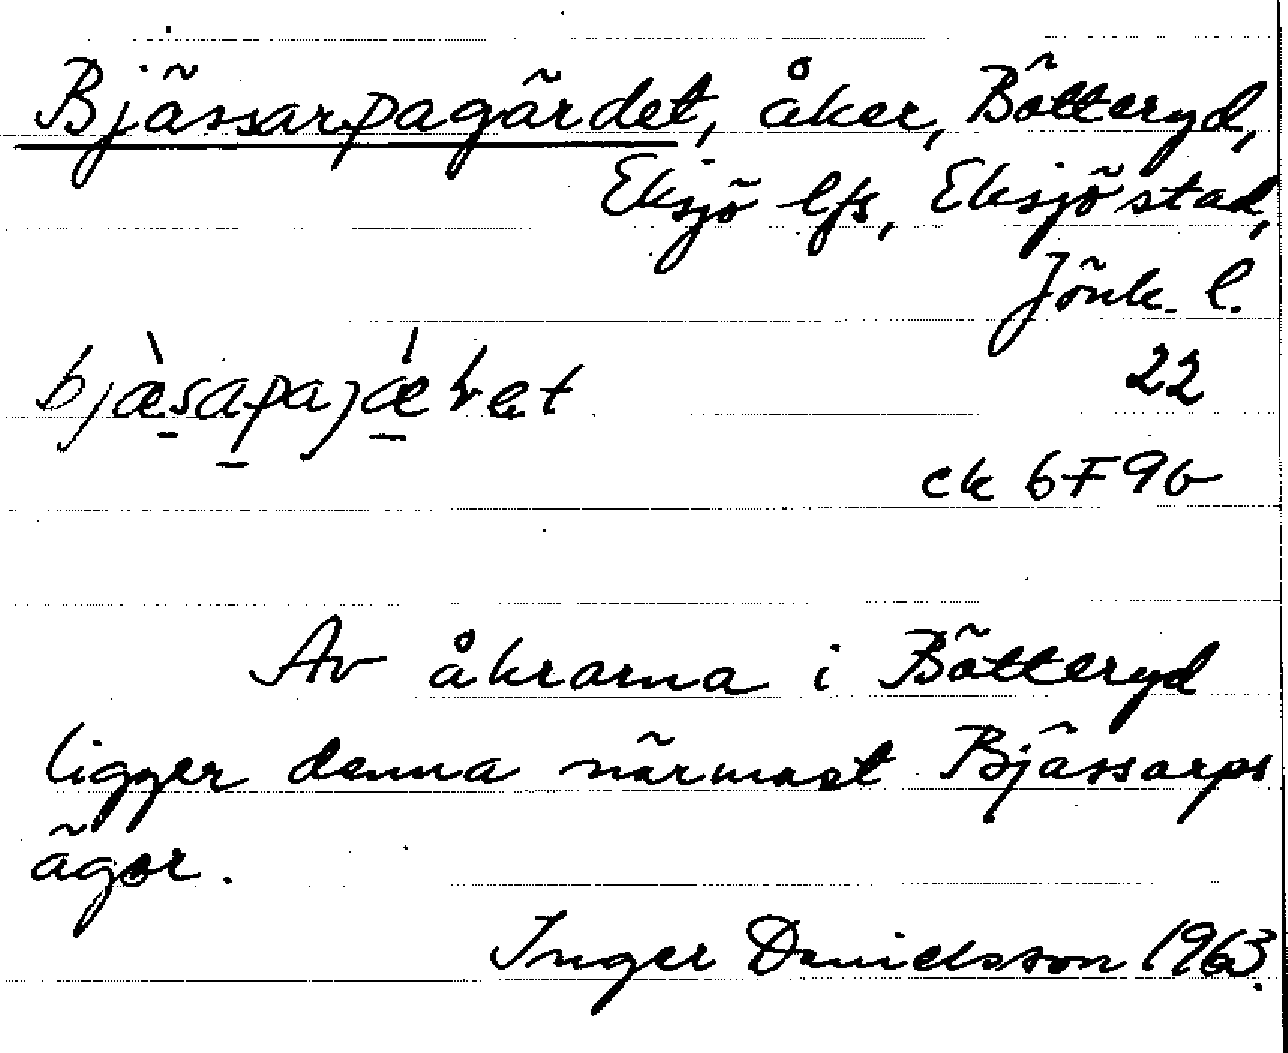 Bjässarpagärdet, åker, Bötteryd,
Eksjö lfs, Eksjö stad,
Jönk. l.
22
ek 6F9b
Av åkrarna i Bötteryd
ligger denna närmast Bjässarps
ägor.
Inger Danielsson 1963.